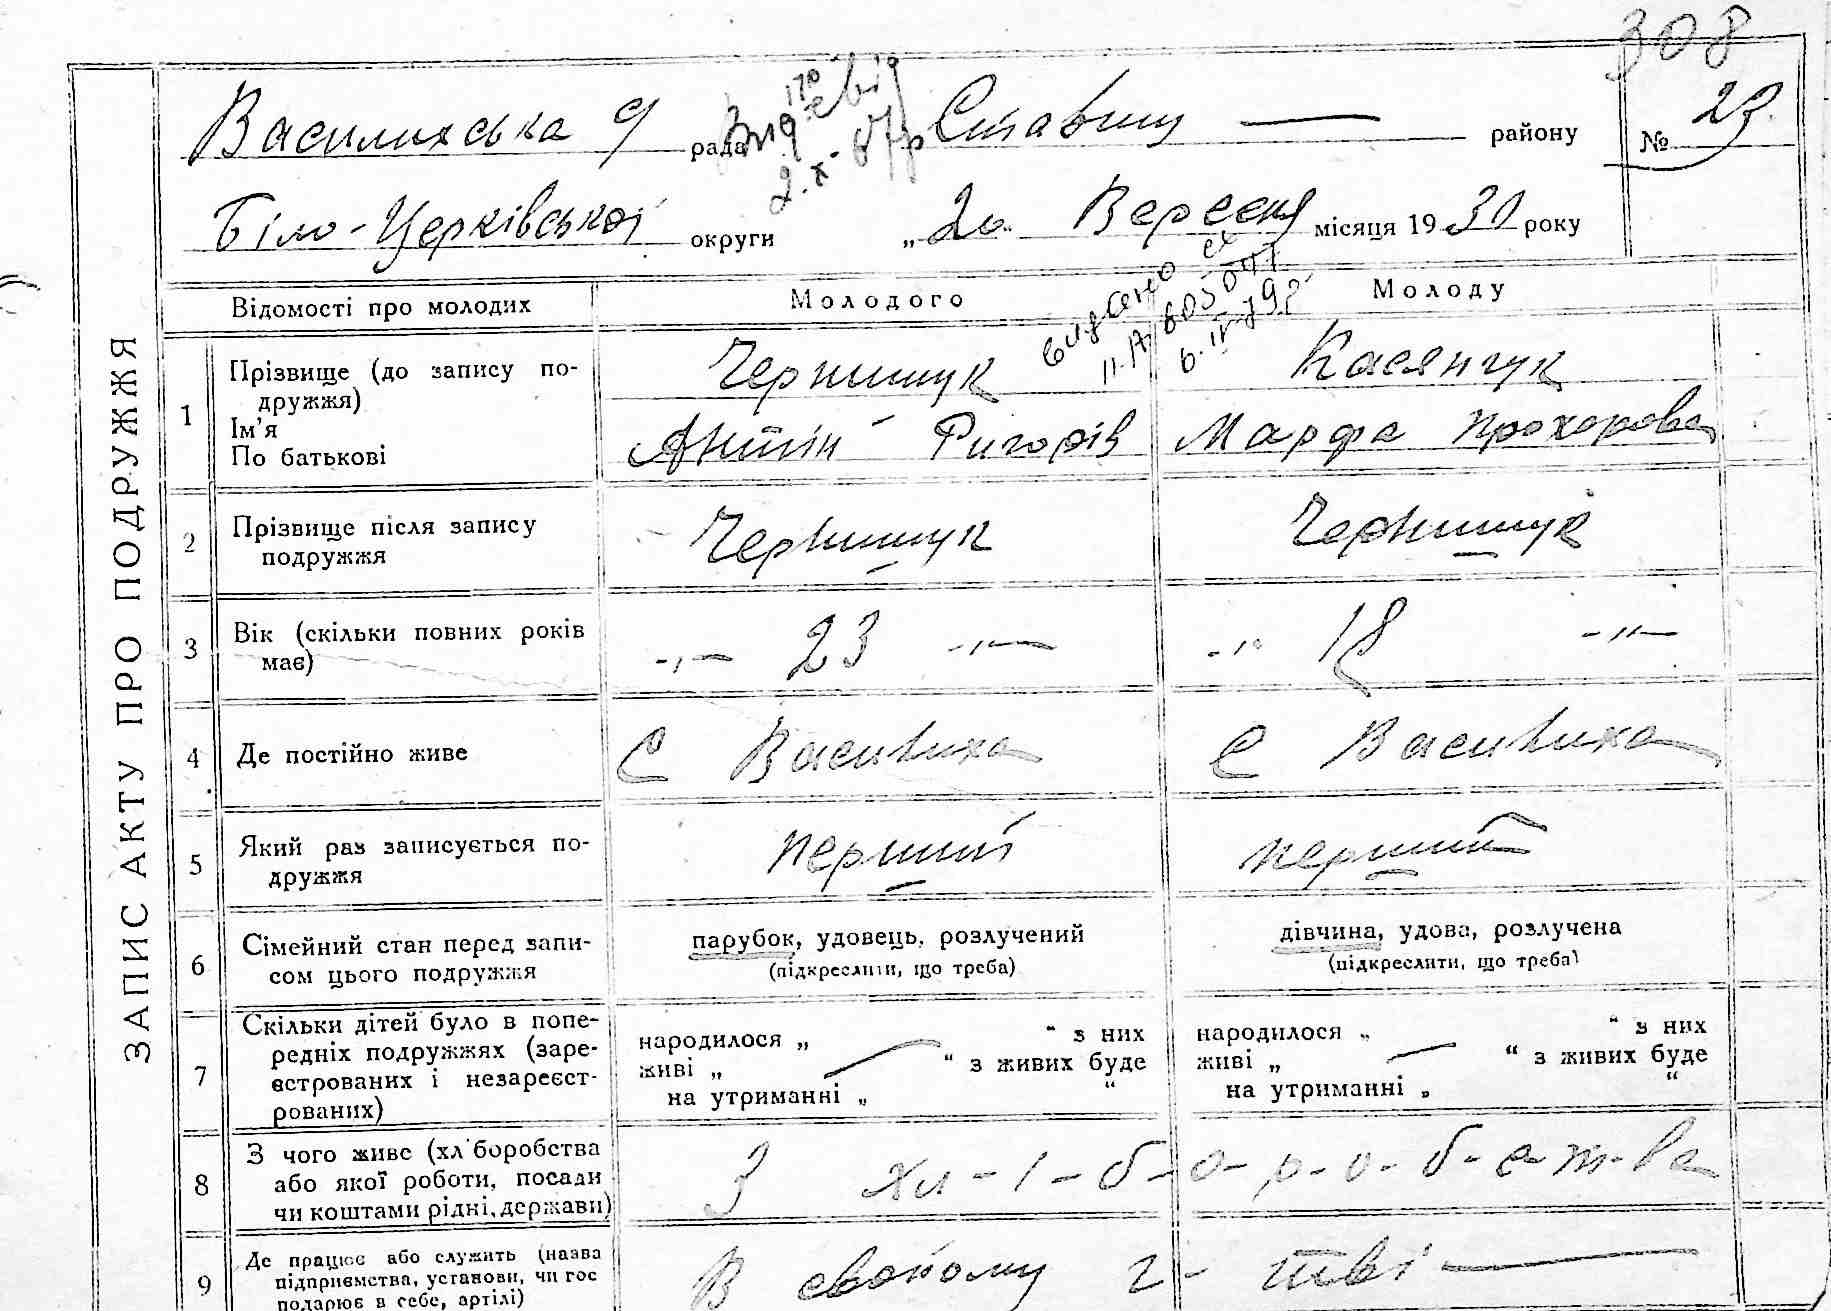 308
Василихська рада Ставищ — району № 23.
Біло-Церківської округи „20" Вересня місяця 1930 року
ЗАПИС АКТУ ПРО ПОДРУЖЖЯ
Відомості про молодих Молодого Молоду
1 Прізвище (до запису по-
дружжя)
Ім'я
По батькові
Чернишук Касянчук
Антін Ригорів Марфа Прохорова
2 Прізвище після запису
подружжя
Чернишук Чернишук
3 Вік (скільки повних років
має)
-„- 23 -„- -„- 18 -„-
4 Де постійно живе С Василиха С Василиха
5 Який раз записується по-
дружжя
перший перший
6 Сімейний стан перед запи-
сом цього подружжя
парубок, удовець, розлучений дівчина, удова, розлучена
(підкреслити, що треба) (підкреслити, що треба)
7 Скільки дітей було в попе-
редніх подружжях (заре-
єстрованих і незареєст-
рованих)
народилося „ “ з них народилося „ “ з них
живі „ — “ з живих буде живі „ — “ з живих буде
на утриманні „ “ на утриманні „ “
8 З чого живе (хліборобства
або якої роботи, посади
чи коштами рідні, держави)
З хл-і-б-о-р-о-б-с-т-ва
9 Де працює або служить (назва
підприємства, установи, чи гос
подарює в себе, артілі)
В своїому г-тві —